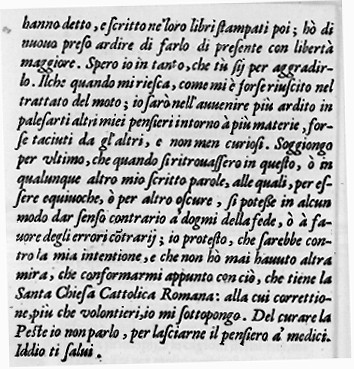 hanno detto, e scritto ne' loro libri stampati poi; hò di
nuouo preso ardire di farlo di presente con libertà
maggiore. Spero io in tanto, che tù sij per aggradir-
lo. Ilche quando mi riesca, come mi è forse riuscito nel
trattato del moto; io sarò nell'auuenire più ardito in
palesarti altri miei pensieri intorno à più materie, for-
se taciuti da gl'altri, e non men curiosi. Soggiongo
per vltimo, che quando si ritrouassero in questo, ò in
qualunque altro mio scritto parole, alle quali, per es-
sere equiuoche, ò per altro oscure, si potesse in alcun
modo dar senso contrario a' dogmi della fede, ò à fa-
uore degli errori cōtrarij; io protesto, che sarebbe con-
tro la mia intentione, e che non hò mai hauuto altra
mira, che conformarmi appunto con ciò, che tiene la
Santa Chiesa Cattolica Romana: alla cui correttio-
ne, piu che volontieri, io mi sottopongo. Del curare la
Peste io non parlo, per lasciarne il pensiero a' medici.
Iddio ti salui.